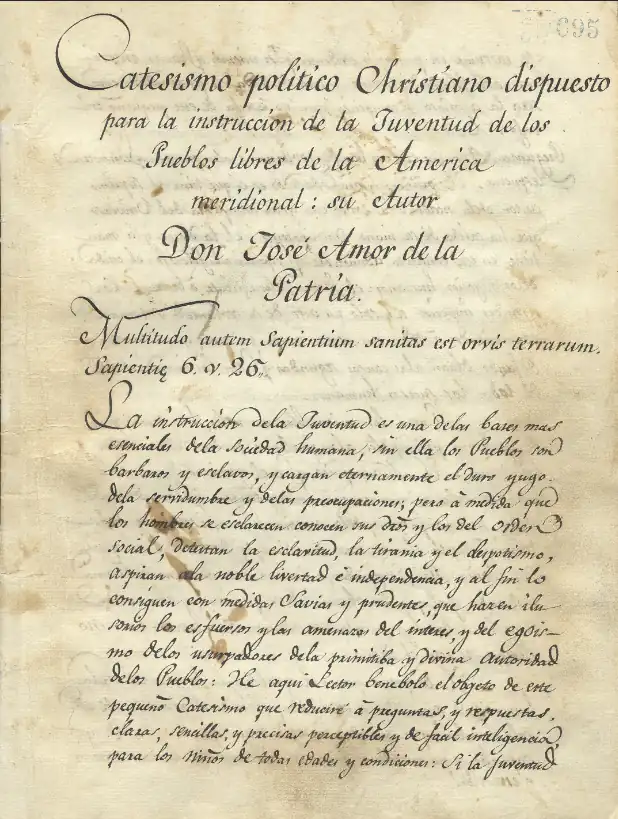 695
Catesismo politico Christiano dispuesto
para la instruccion de la Juventud de los
Pueblos libres de la America
meridional: su Autor
Don José Amor de la
Patria.
Multitudo autem Sapientium sanitas est orvis terrarum.
Sapientię 6. v. 26.
La instruccion dela Juventud es una delas bases mas
esenciales dela sociedad humana, sin ella los Pueblos son
barbaros y esclavos, y cargan eternamente el duro yugo
dela servidumbre y delas preocupaciones; pero à medida que
los hombres se esclarecen conocen sus dros y los del orden
social, detestan la esclavitud, la tirania y el despotismo,
aspiran ala noble livertad è independencia, y al fin lo
consiguen con medidas Savias y prudentes, que hazen ilu
sorios los esfuersos y las amenazas del interes, y del egois-
mo delos usurpadores dela primitiba y divina autoridad
delos Pueblos: He aqui Lector benebolo el objeto de este
pequeño Catesismo que reduciré à preguntas, y respuestas,
claras, sencillas, y precisas perceptibles y de facil inteligencia
para los niños de todas edades y condiciones: Si la juventud